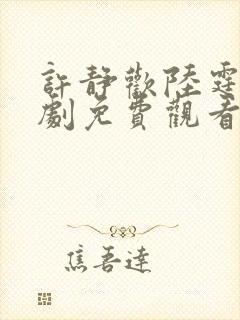 許靜歡陸霆
劇免費觀看
焦吾達